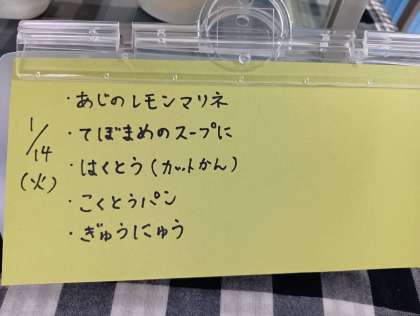 1/14
(火)
・あじのレモンマリネ
・てぼまめのスープに
・はくとう(カットかん)
・こくとうパン
・ぎゅうにゅう